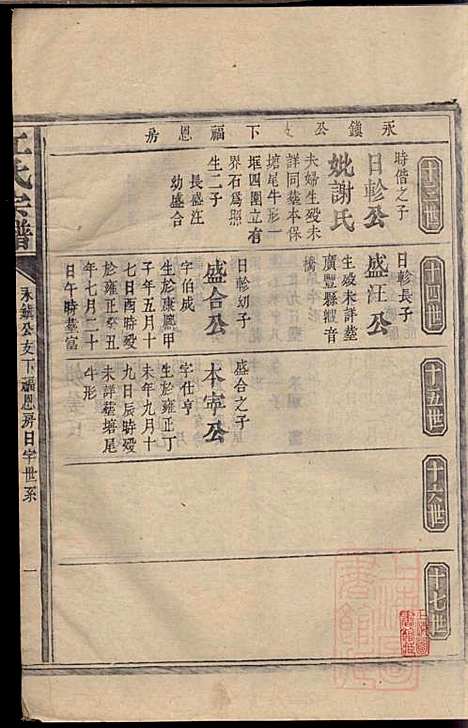 永鎮公支下福恩房
十三世
時偕之子
日軫公
妣謝氏
夫婦生歿未
詳同葬本保
塘尾牛形一
坵四圍立有
界石為照
生二子
長盛汪
幼盛合
十四世
日軫長子
盛汪公
生歿未詳葬
廣豐縣觀音
橋
日軫幼子
盛合公
字伯成
生於康熙甲
子年五月十
七日酉時歿
於雍正癸丑
年七月二十
日午時葬富
十五世
盛合之子
本寧公
字仕亨
生於雍正丁
未年九月十
九日辰時歿
未詳葬塘尾
牛形
十六世
十七世
氏宗譜
永鎮公支下福恩房日字世系
一